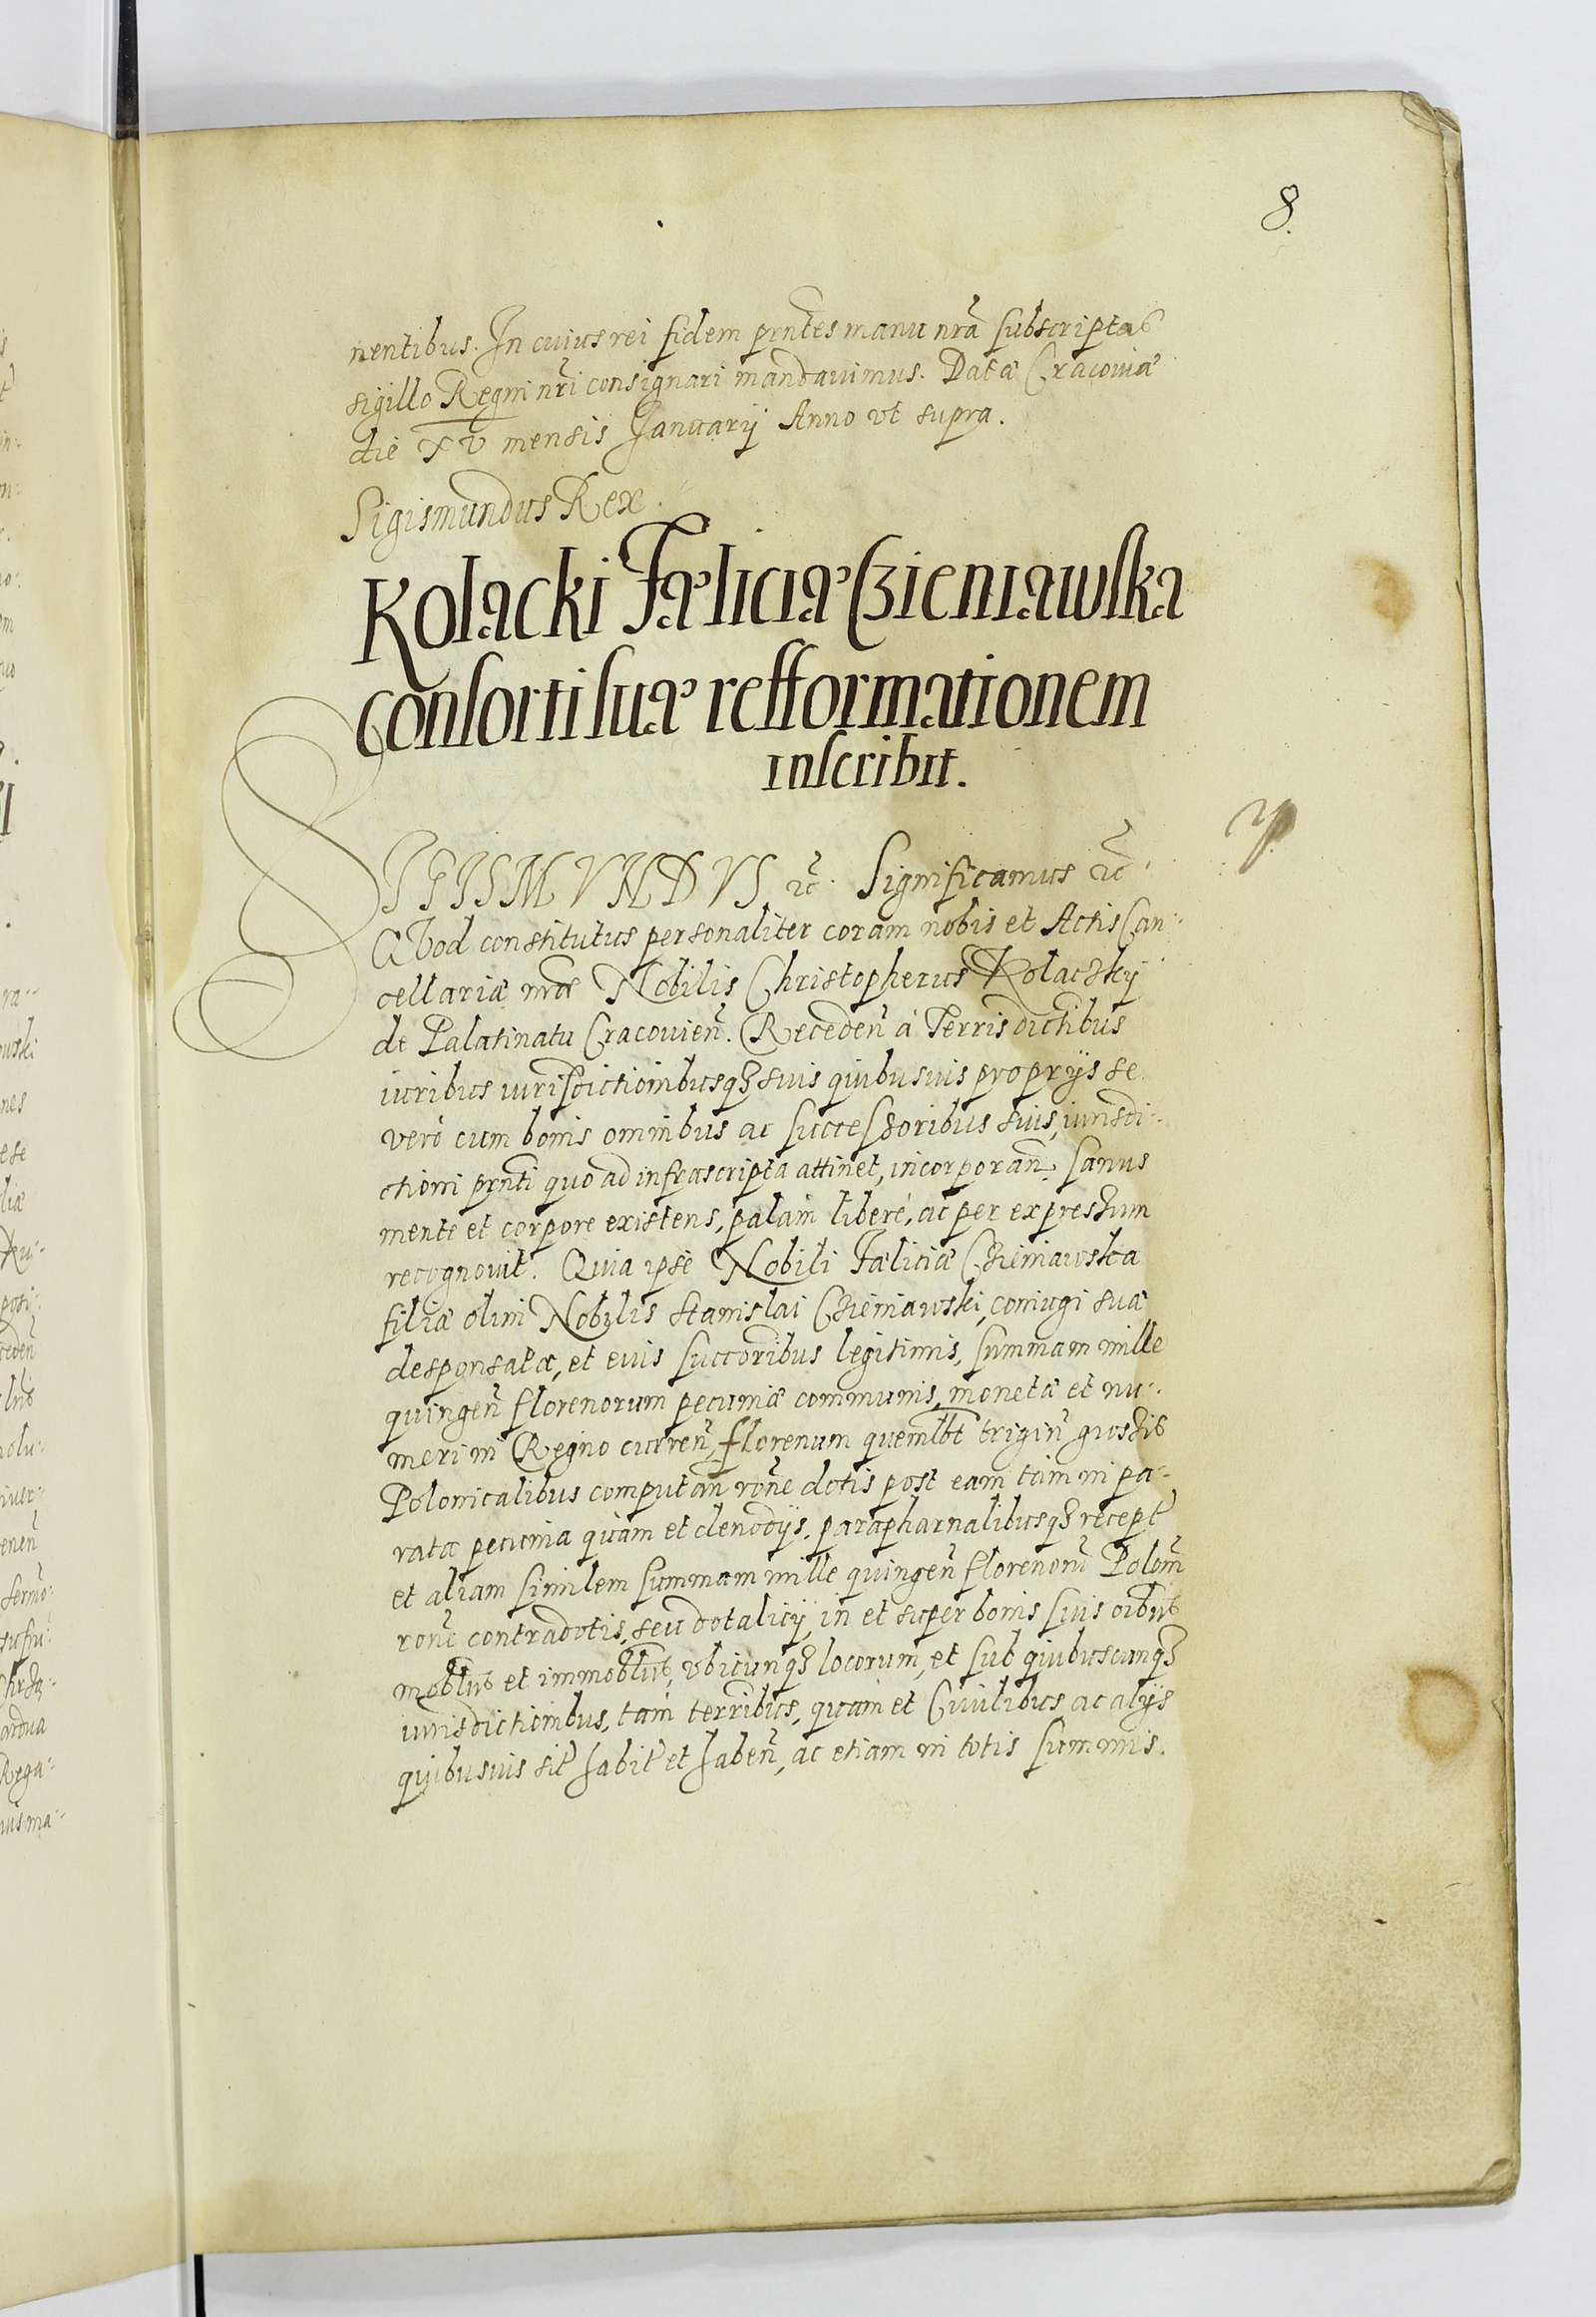 8.
nentibus. In cuius rei fidem prntes manu nrã subscriptas
sigillo Regni nri consignari mandauimus. Datæ Cracouiæ
die XV mensis Januarij Anno vt supra.
Sigismundus Rex.
Kolacki Fæliciæ Czieniawska
consorti suæ refformationem
inscribit.
SIGISMVNDVS etc. Significamus etc.
QVod constitutus personaliter coram nobis et Actis Can-
cellariæ nræ Nobilis Christopherus Kolaczky
de Palatinatu Cracouien. Receden à Terris dictibus
iuribus iurisdictionibusq3 suis quibusuis proprijs se
verò cum bonis omnibus ac successoribus suis, iurisdi-
ctioni prnti quo ad infrascripta attinet, incorporan. Sanus
mente et corpore existens, palam liberè, ac per expressum
recognouit. Quia ipse Nobili Fæliciæ Czieniawska
filiæ olim Nobilis Stanislai Czieniawski, coniugi suæ
desponsatæ, et eius succoribus legitimis, summam mille
quingen florenorum pecuniæ communis, monetæ et nu-
meri in Regno curren, florenum quemlbt trigin grossis
Polonicalibus computan rone dotis post eam tam in pa-
rata pecunia quàm et clenodijs, parapharnalibusq3 recept
et aliam similem summam mille quingen florenoru Polon
rone contradotis, seu dotalicij, in et super bonis suis oibus
moblibus et immoblibus, vbicunq3 locorum, et sub quibuscunq3
iurisdictionibus, tam terribus, quam et Ciuilibus ac alijs
quibusuis sit habit et haben, ac etiam in totis summis.